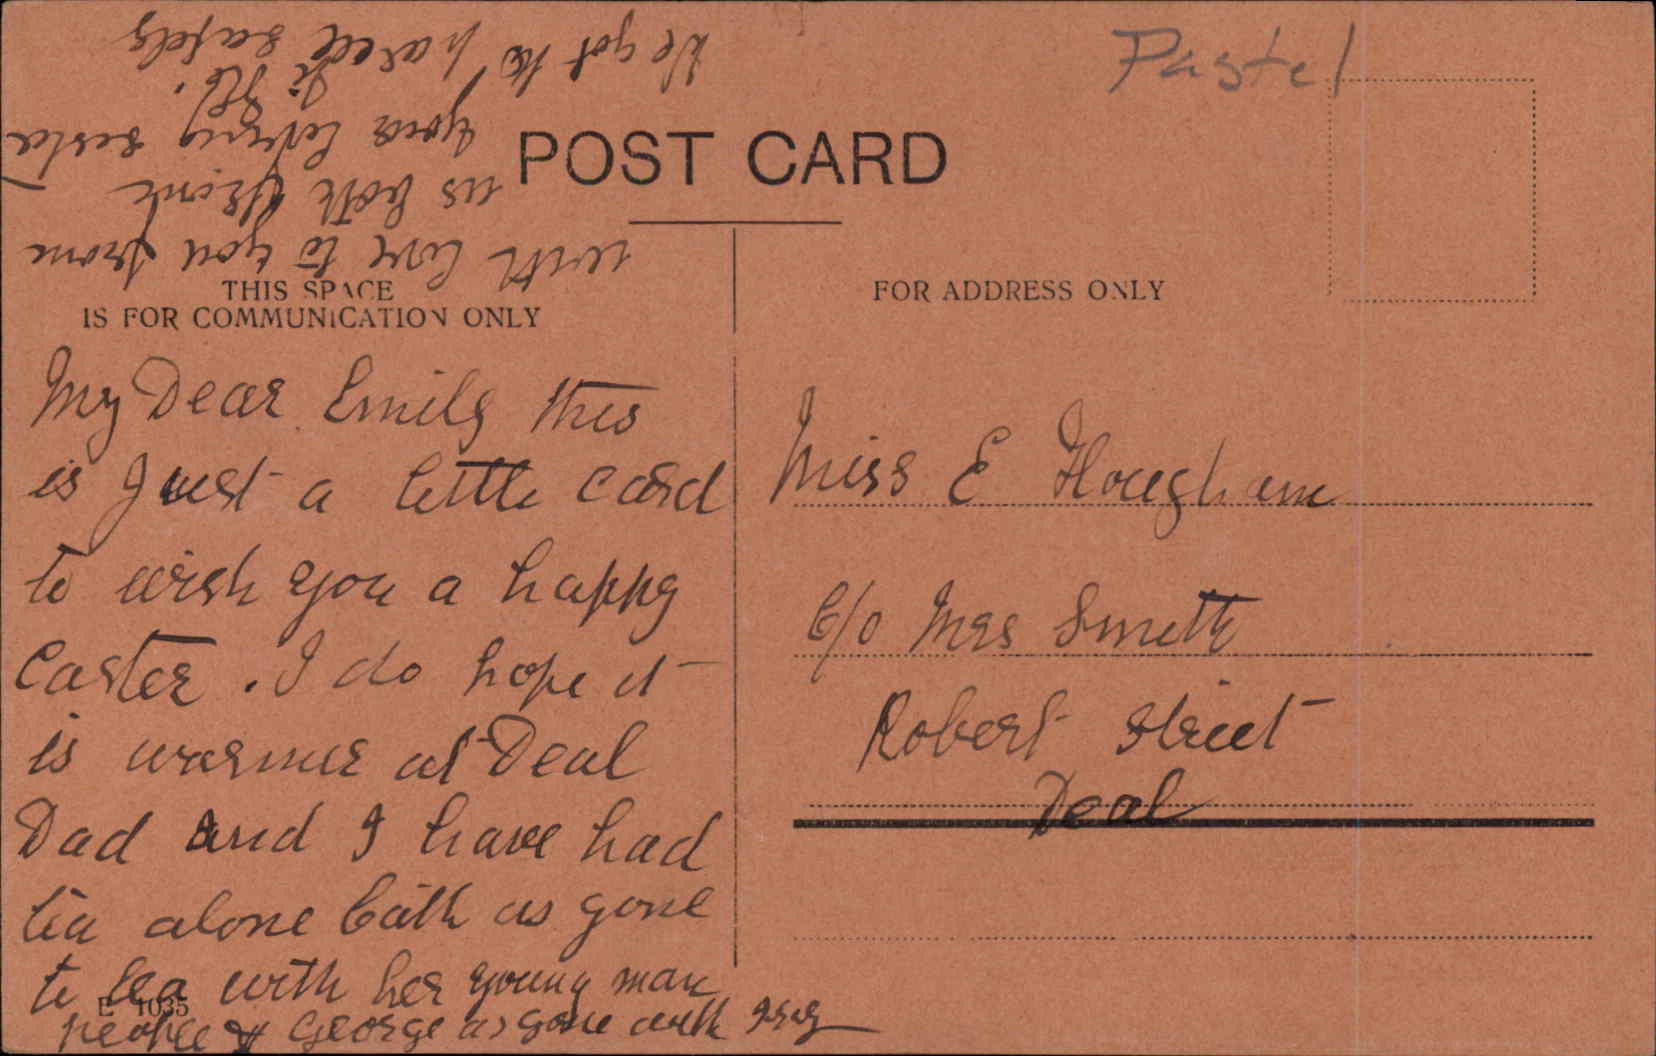 Pastel
POST CARD
THIS SPACE
IS FOR COMMUNICATION ONLY
FOR ADDRESS ONLY
My Dear Emily this
is Just a little card
to wish you a happy
Easter . I do hope it
is warmer at Deal
Dad and I have had
tea alone Cath as gone
to tea with her young man
people & George as gone with
E 1035
with love to you from
us both from
your loving sister
We got the parcel safely
Miss E Hougham
C/o Mrs Smith
Robert Street
Deal